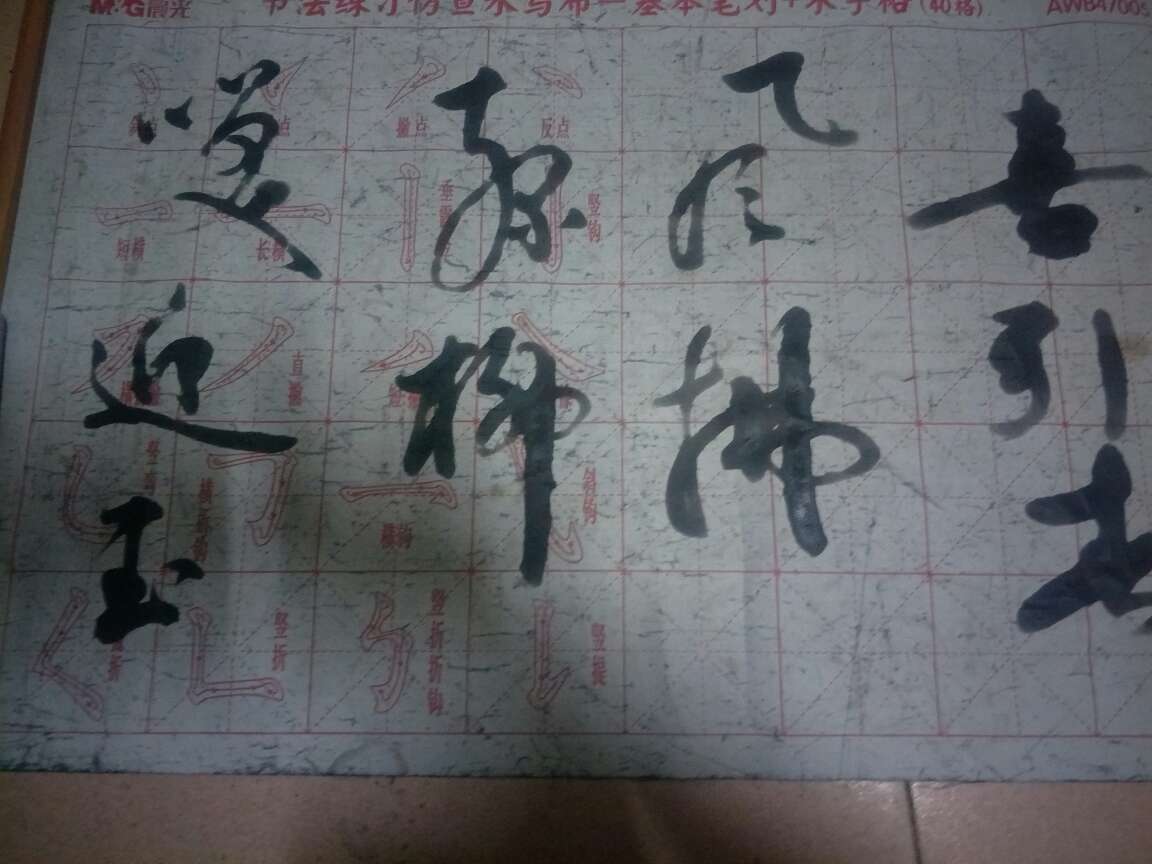 M&G晨光 书法练习仿宣水写布—基本笔划+米字格(40格) AWB4700
喜引
风拂
柳
笑迎玉
撇点 反点
短横 长横 竖钩
直撇
横折钩 横钩 斜钩
竖折 竖折折钩 竖提